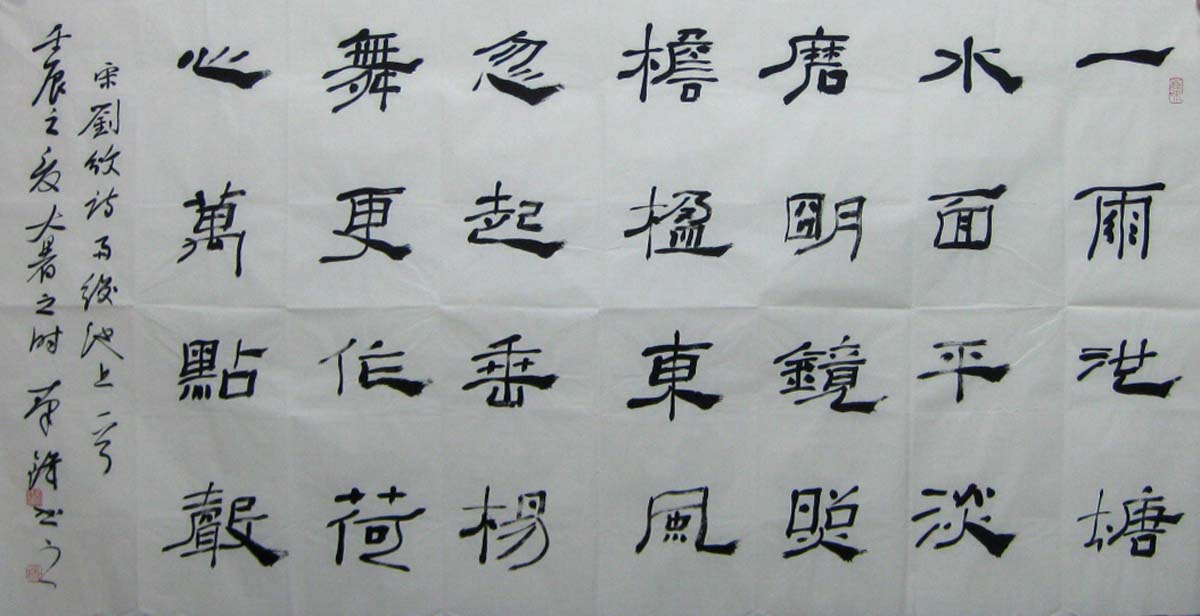 一雨池塘
水面平淡
磨明鏡照
檐楹東風
忽起垂楊
舞更作荷
心萬點聲
宋劉攽詩雨後池上一首
壬辰之夏大暑之时书